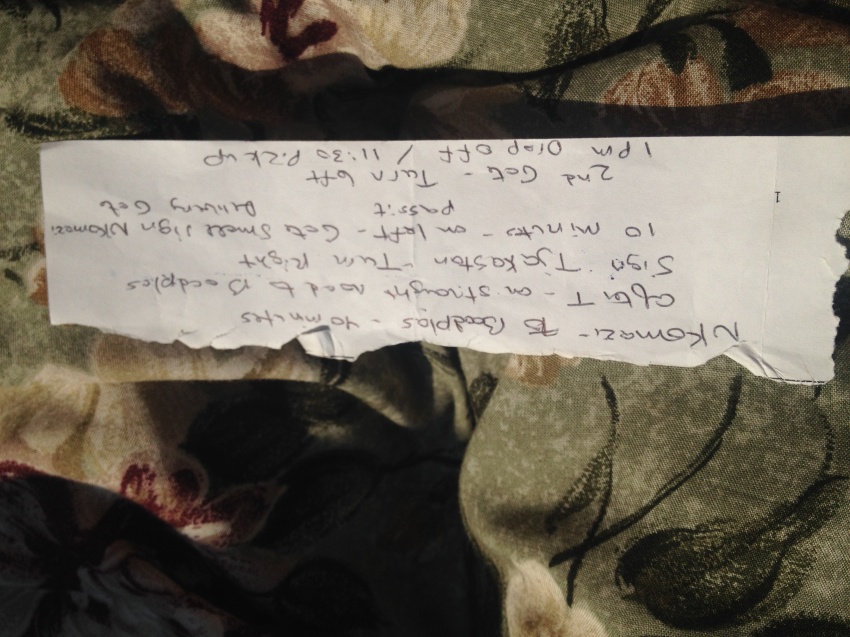 NKomazi - To Boodplas - 40 minutes
after T - on straight road to Boodplas
Sign Tjakaston - Turn Right
10 minutes - on left - Gate Small sign NKomazi
pass it Delivery Gate
2nd Gate - Turn left
1 pm Drop off / 11:30 Pick up
1